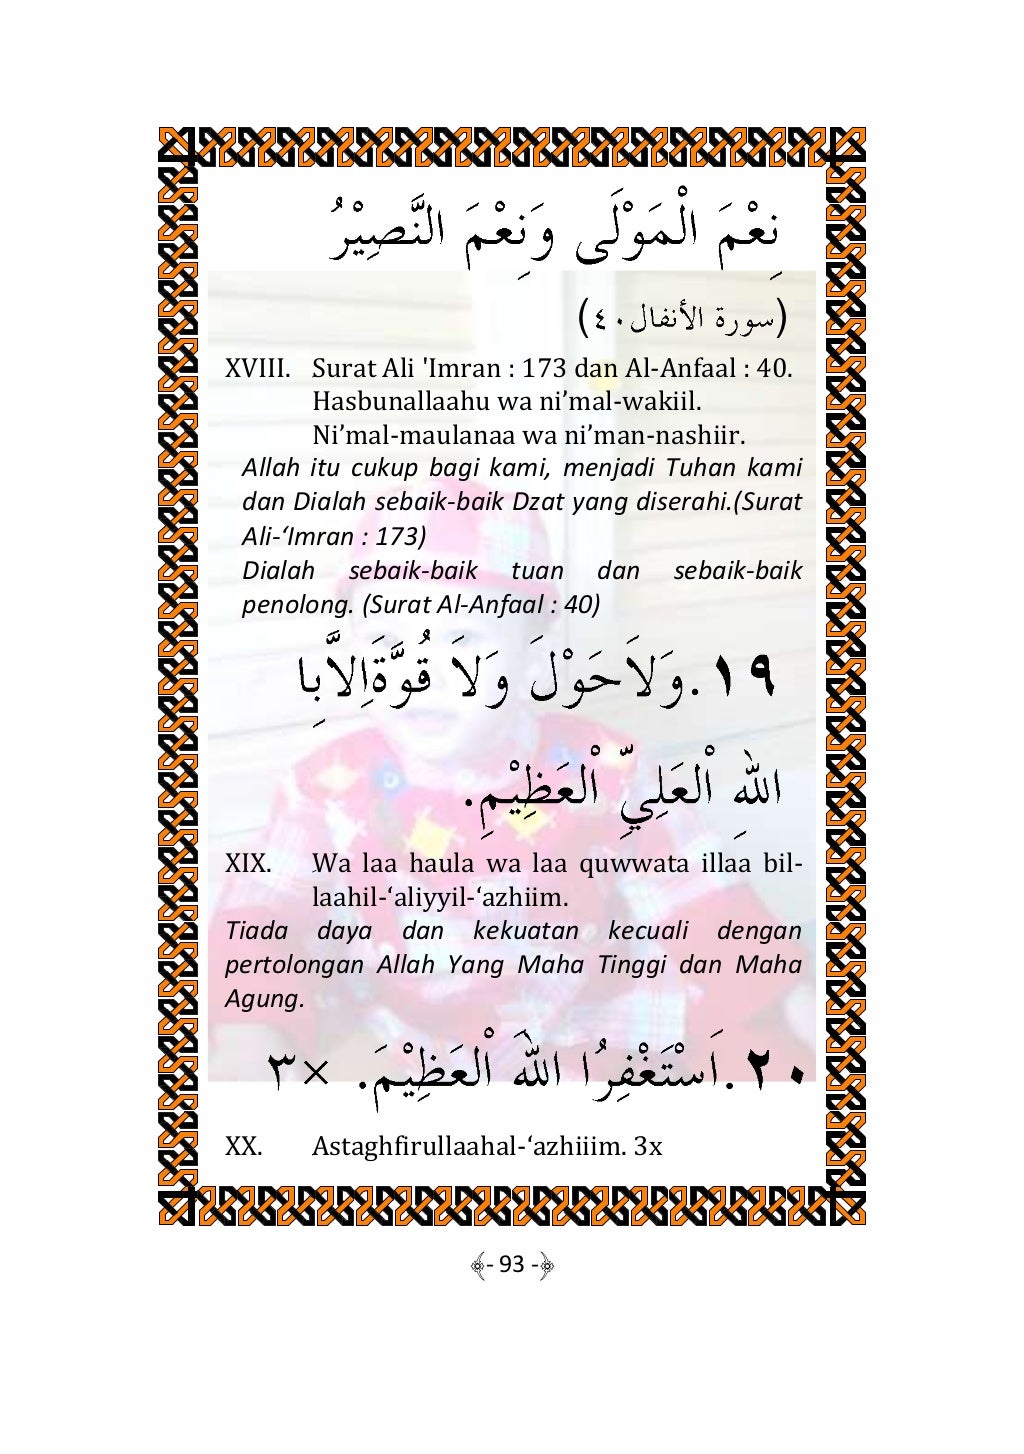 نِعْمَ الْمَوْلَى وَنِعْمَ النَّصِيْرُ
(سورة الأنفال٤٠)
XVIII. Surat Ali 'Imran : 173 dan Al-Anfaal : 40.
Hasbunallaahu wa ni’mal-wakiil.
Ni’mal-maulanaa wa ni’man-nashiir.
Allah itu cukup bagi kami, menjadi Tuhan kami
dan Dialah sebaik-baik Dzat yang diserahi.(Surat
Ali-‘Imran : 173)
Dialah sebaik-baik tuan dan sebaik-baik
penolong. (Surat Al-Anfaal : 40)
١٩.وَلاَحَوْلَ وَلاَ قُوَّةَاِلاَّبِا
اللهِ اْلعَلِيِّ اْلعَظِيْمِ.
XIX. Wa laa haula wa laa quwwata illaa bil-
laahil-‘aliyyil-‘azhiim.
Tiada daya dan kekuatan kecuali dengan
pertolongan Allah Yang Maha Tinggi dan Maha
Agung.
٢٠.اَسْتَغْفِرُا اللهَ اْلعَظِيْمَ. ×٣
XX. Astaghfirullaahal-‘azhiiim. 3x
- 93 -